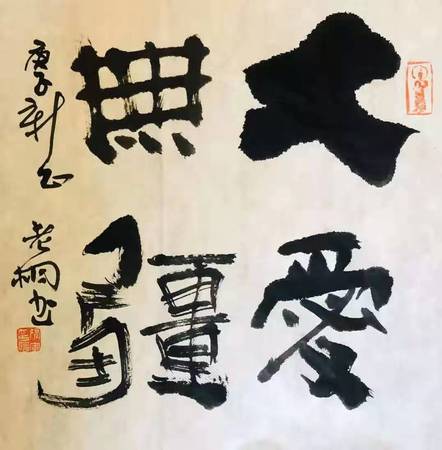 大愛
無疆
庚子新正
老桐書